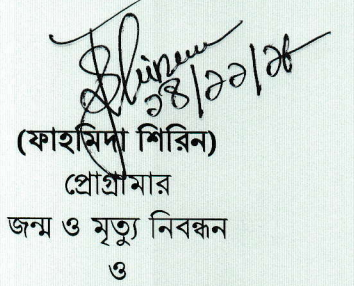 ১৪/১১/২৫
(ফাহমিদা শিরিন)
প্রোগ্রামার
জন্ম ও মৃত্যু নিবন্ধন
ও